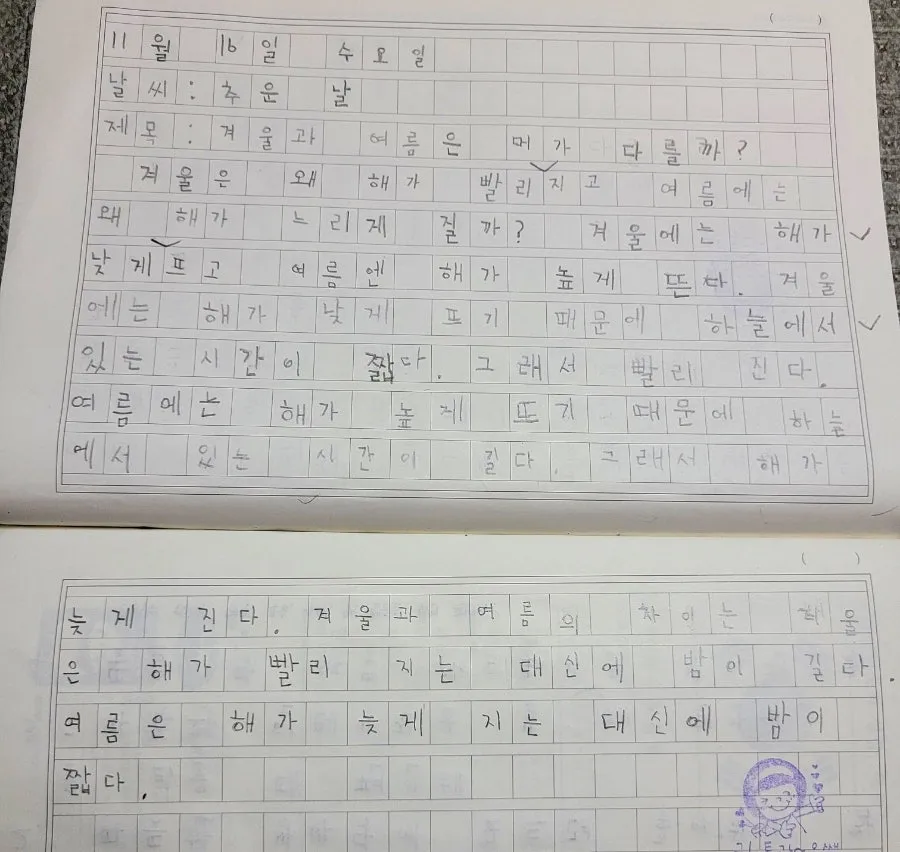 11월 16일 수요일
날씨: 추운 날
제목: 겨울과 여름은 머가 다를까?
겨울은 왜 해가 빨리지고 여름에는
왜 해가 느리게 질까? 겨울에는 해가
낮게프고 여름엔 해가 높게 뜬다. 겨울
에는 해가 낮게 프기 때문에 하늘에서
있는 시간이 짧다. 그래서 빨리 진다.
여름에는 해가 높게 뜨기 때문에 하늘
에서 있는 시간이 길다. 그래서 해가
늦게 진다. 겨울과 여름의 차이는 겨울
은 해가 빨리 지는 대신에 밤이 길다.
여름은 해가 늦게 지는 대신에 밤이
짧다.